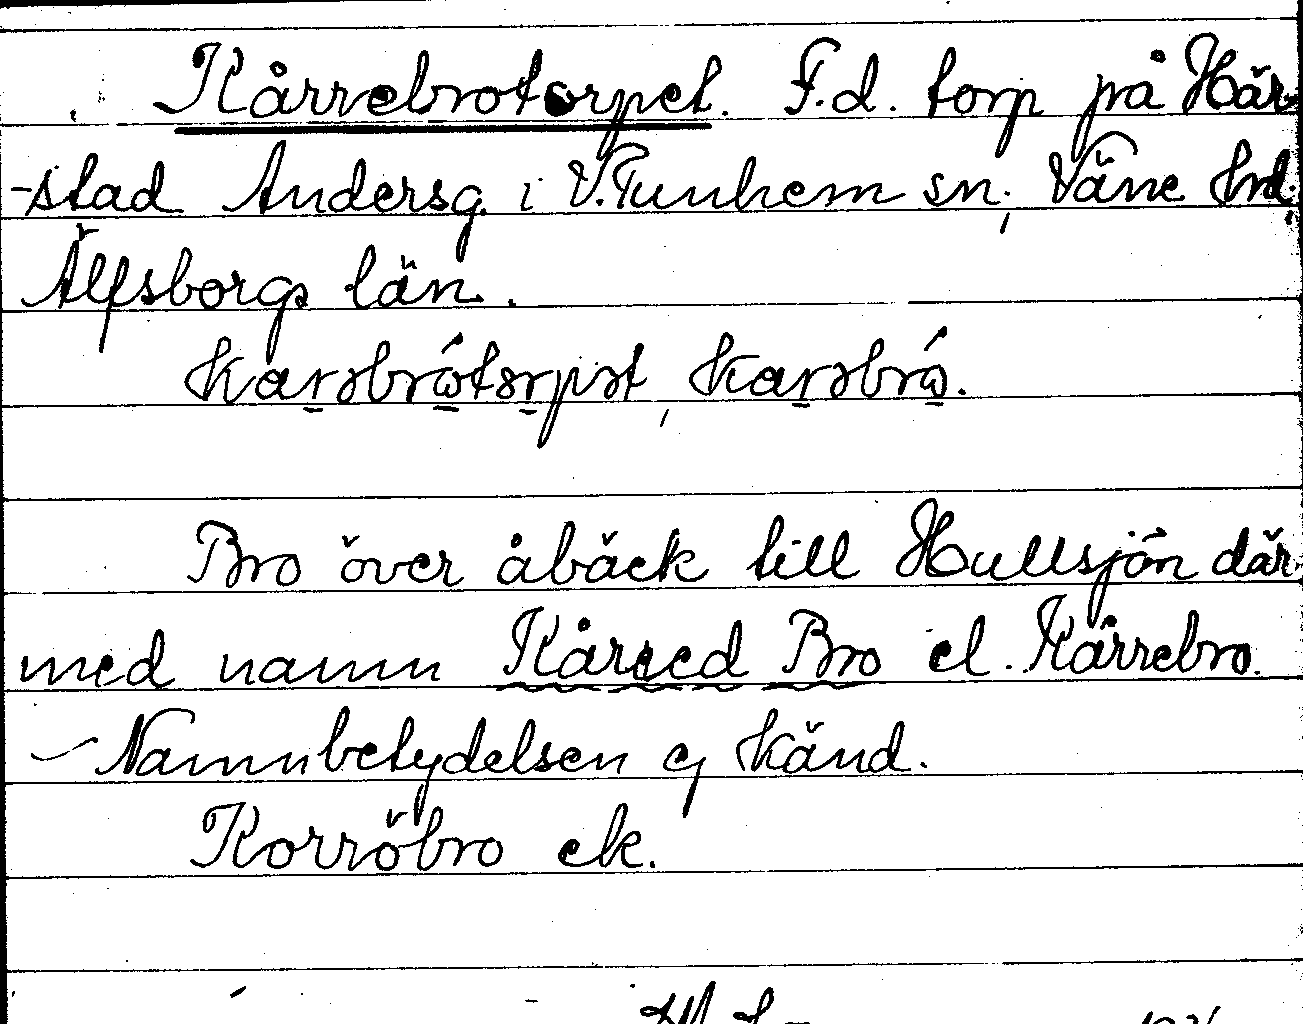 Kårrebrotorpet. F.d. torp på Här-
-stad Andersg. i V. Tunhem sn, Väne hd.
Älfsborgs län.
karəbrótorpət, karəbró.
Bro över åbäck till Hullsjön där
med namn Kårred Bro el. Kårrebro.
- Namnbetydelsen ej känd.
Korröbro ek.